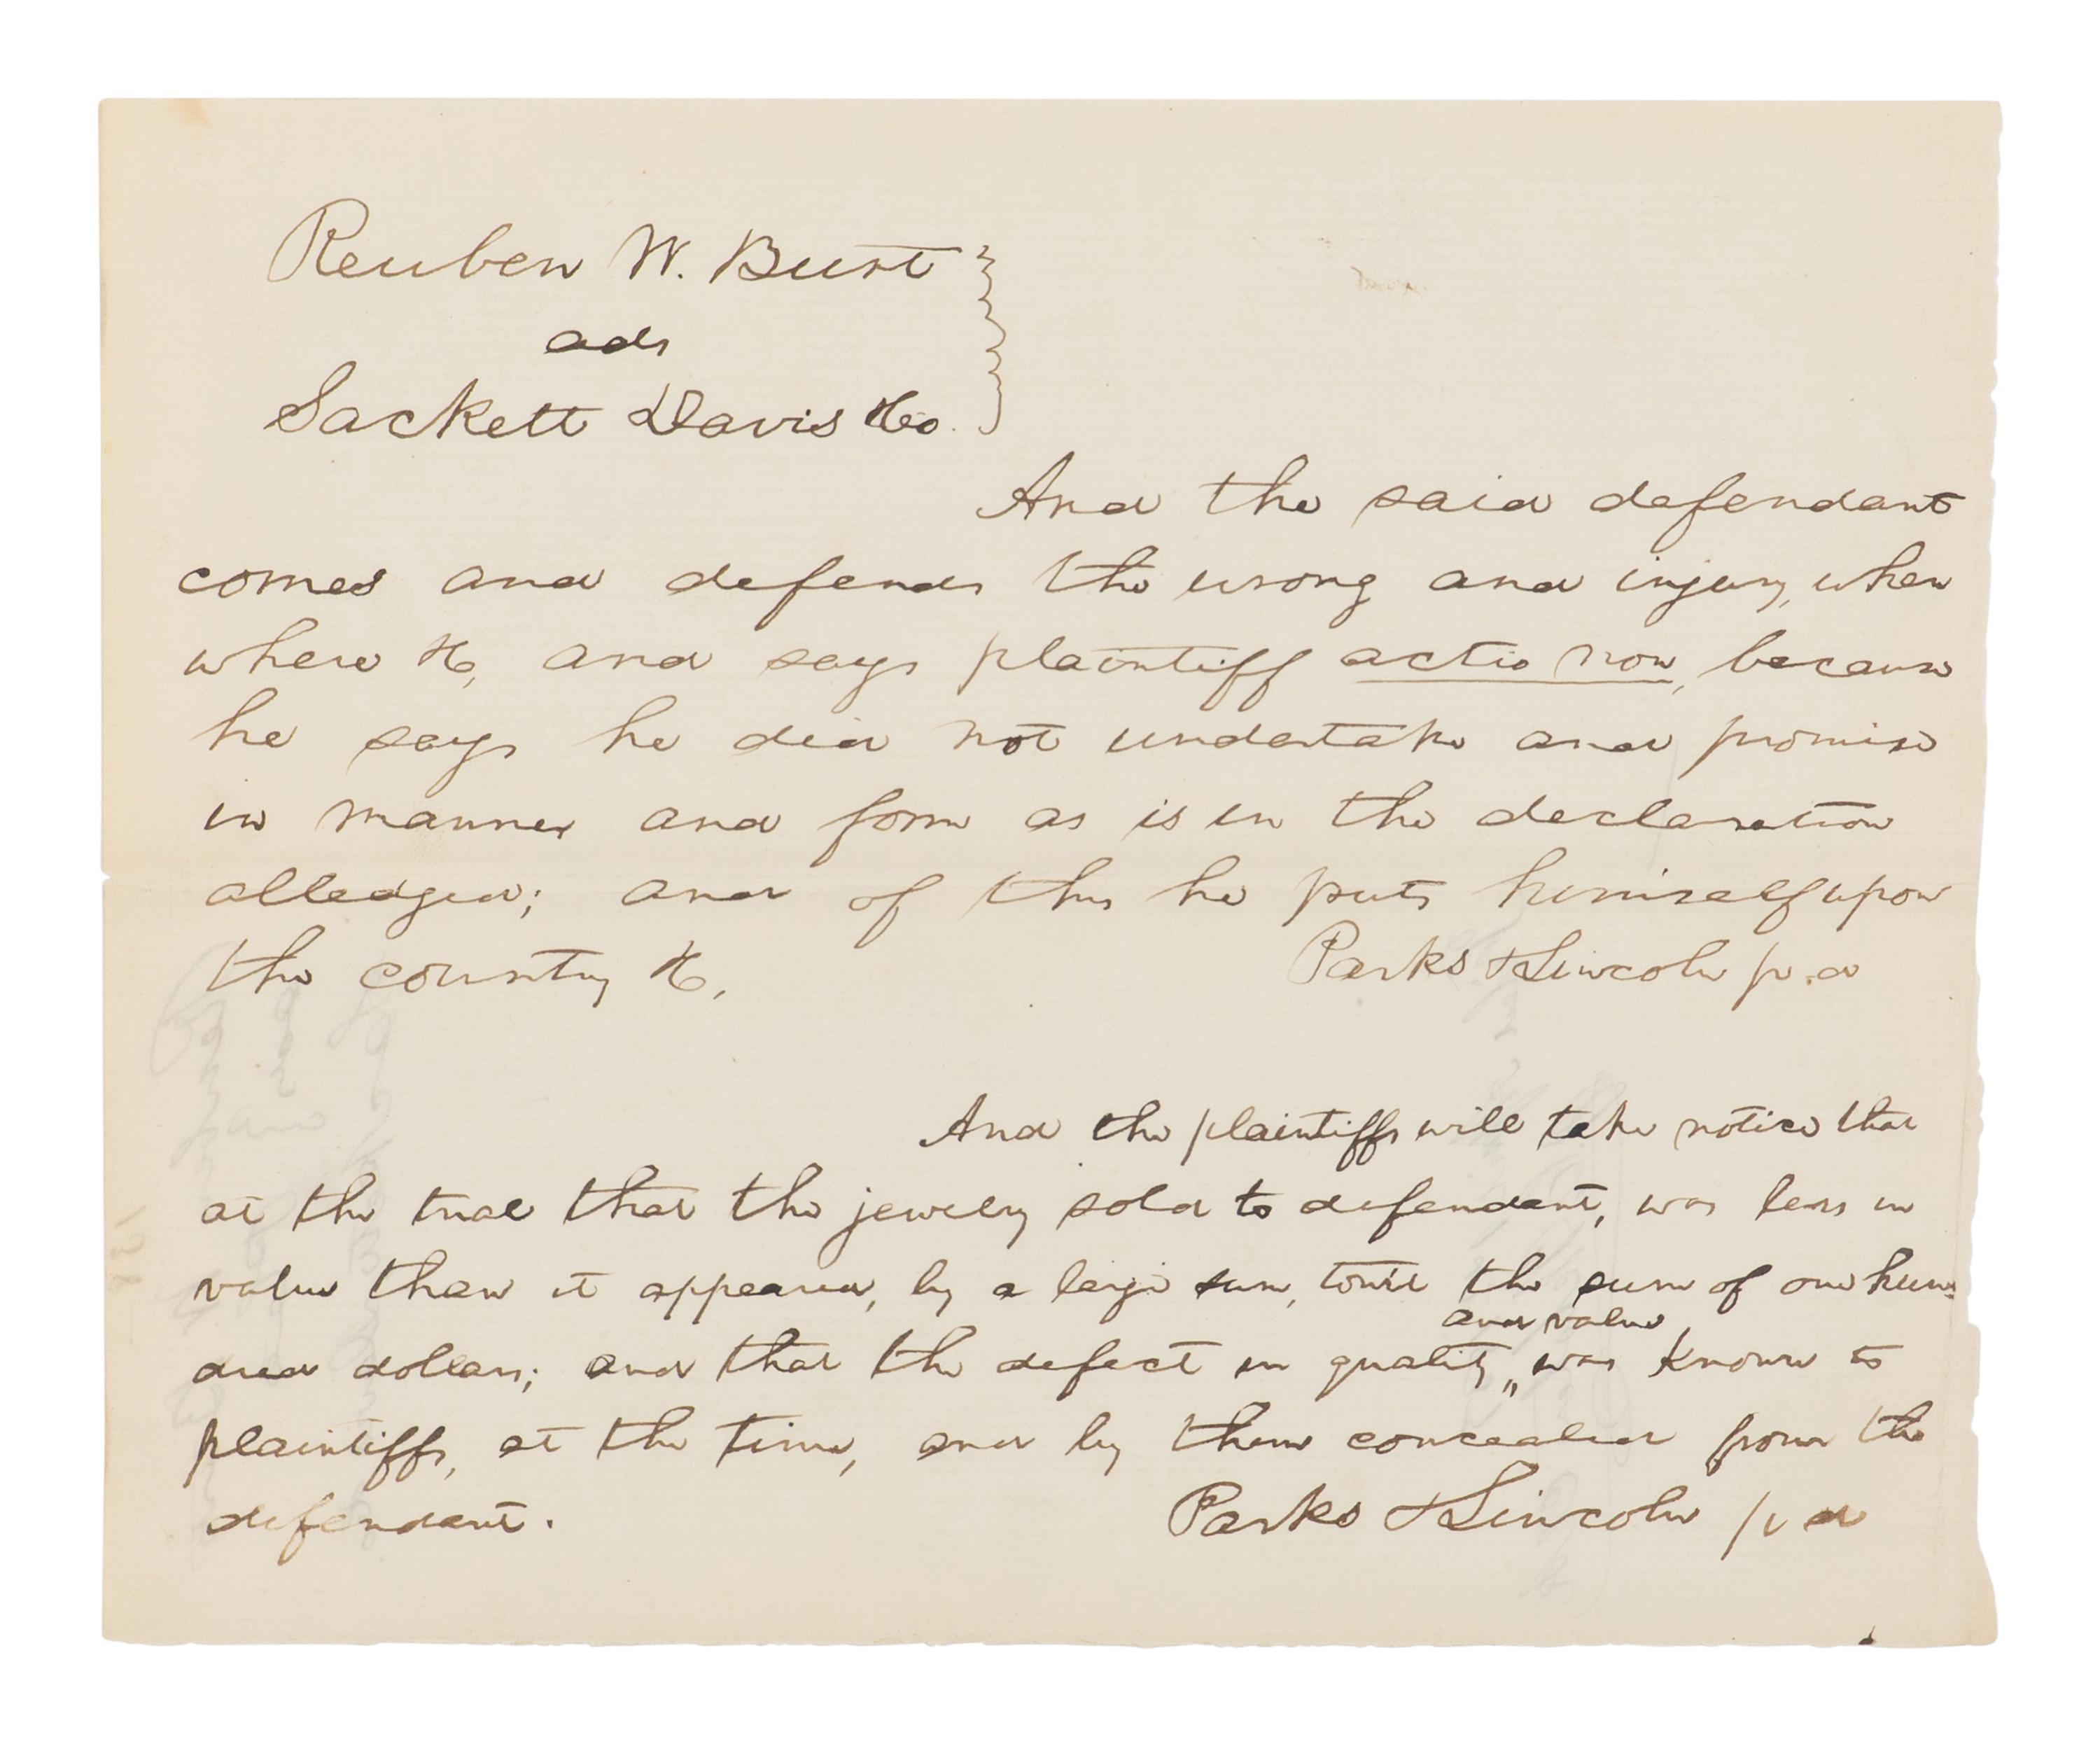 Reuben W. Burt
ads
Sackett Davis &Co.
And the said defendant
comes and defends the wrong and injury, when
where &c, and says plaintiff actio non, because
he says he did not undertake and promise
in manner and form as is in the declaration
alledged; and of this he puts himself upon
the country &c,
Parks & Lincoln p.d
And the plaintiffs will take notice that
at the trial that the jewelry sold to defendant, was less in
value than it appeared, by a large sum, towit the sum of one hun=
and value
dred dollars; and that the defect in quality " was known to
plaintiffs, at the time, and by them concealed from the
defendant.
Parks & Lincoln p d